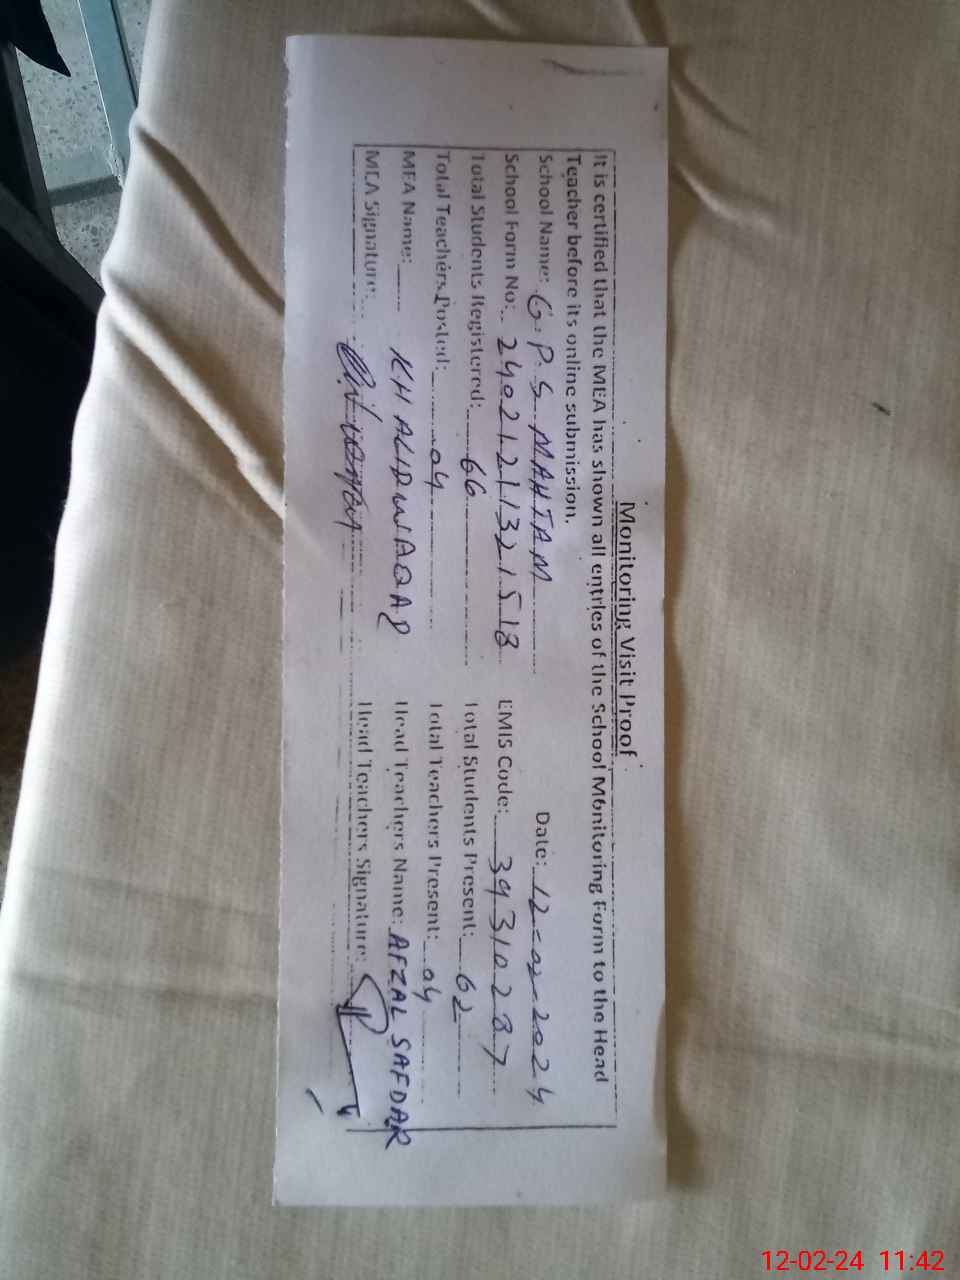 Monitoring Visit Proof
It is certified that the MEA has shown all entries of the School Monitoring Form to the Head
Teacher before its online submission.
School Name: G.P.S MAHTAM Date: 12-02-2024
School Form No: 24021211321518 EMIS Code: 39310287
Total Students Registered: 66 Total Students Present: 62
Total Teachers Posted: 04 Total Teachers Present: 04
MEA Name: KHALID WAQAR Head Teachers Name: AFZAL SAFDAR
MEA Signature: Head Teachers Signature:
12-02-24 11:42